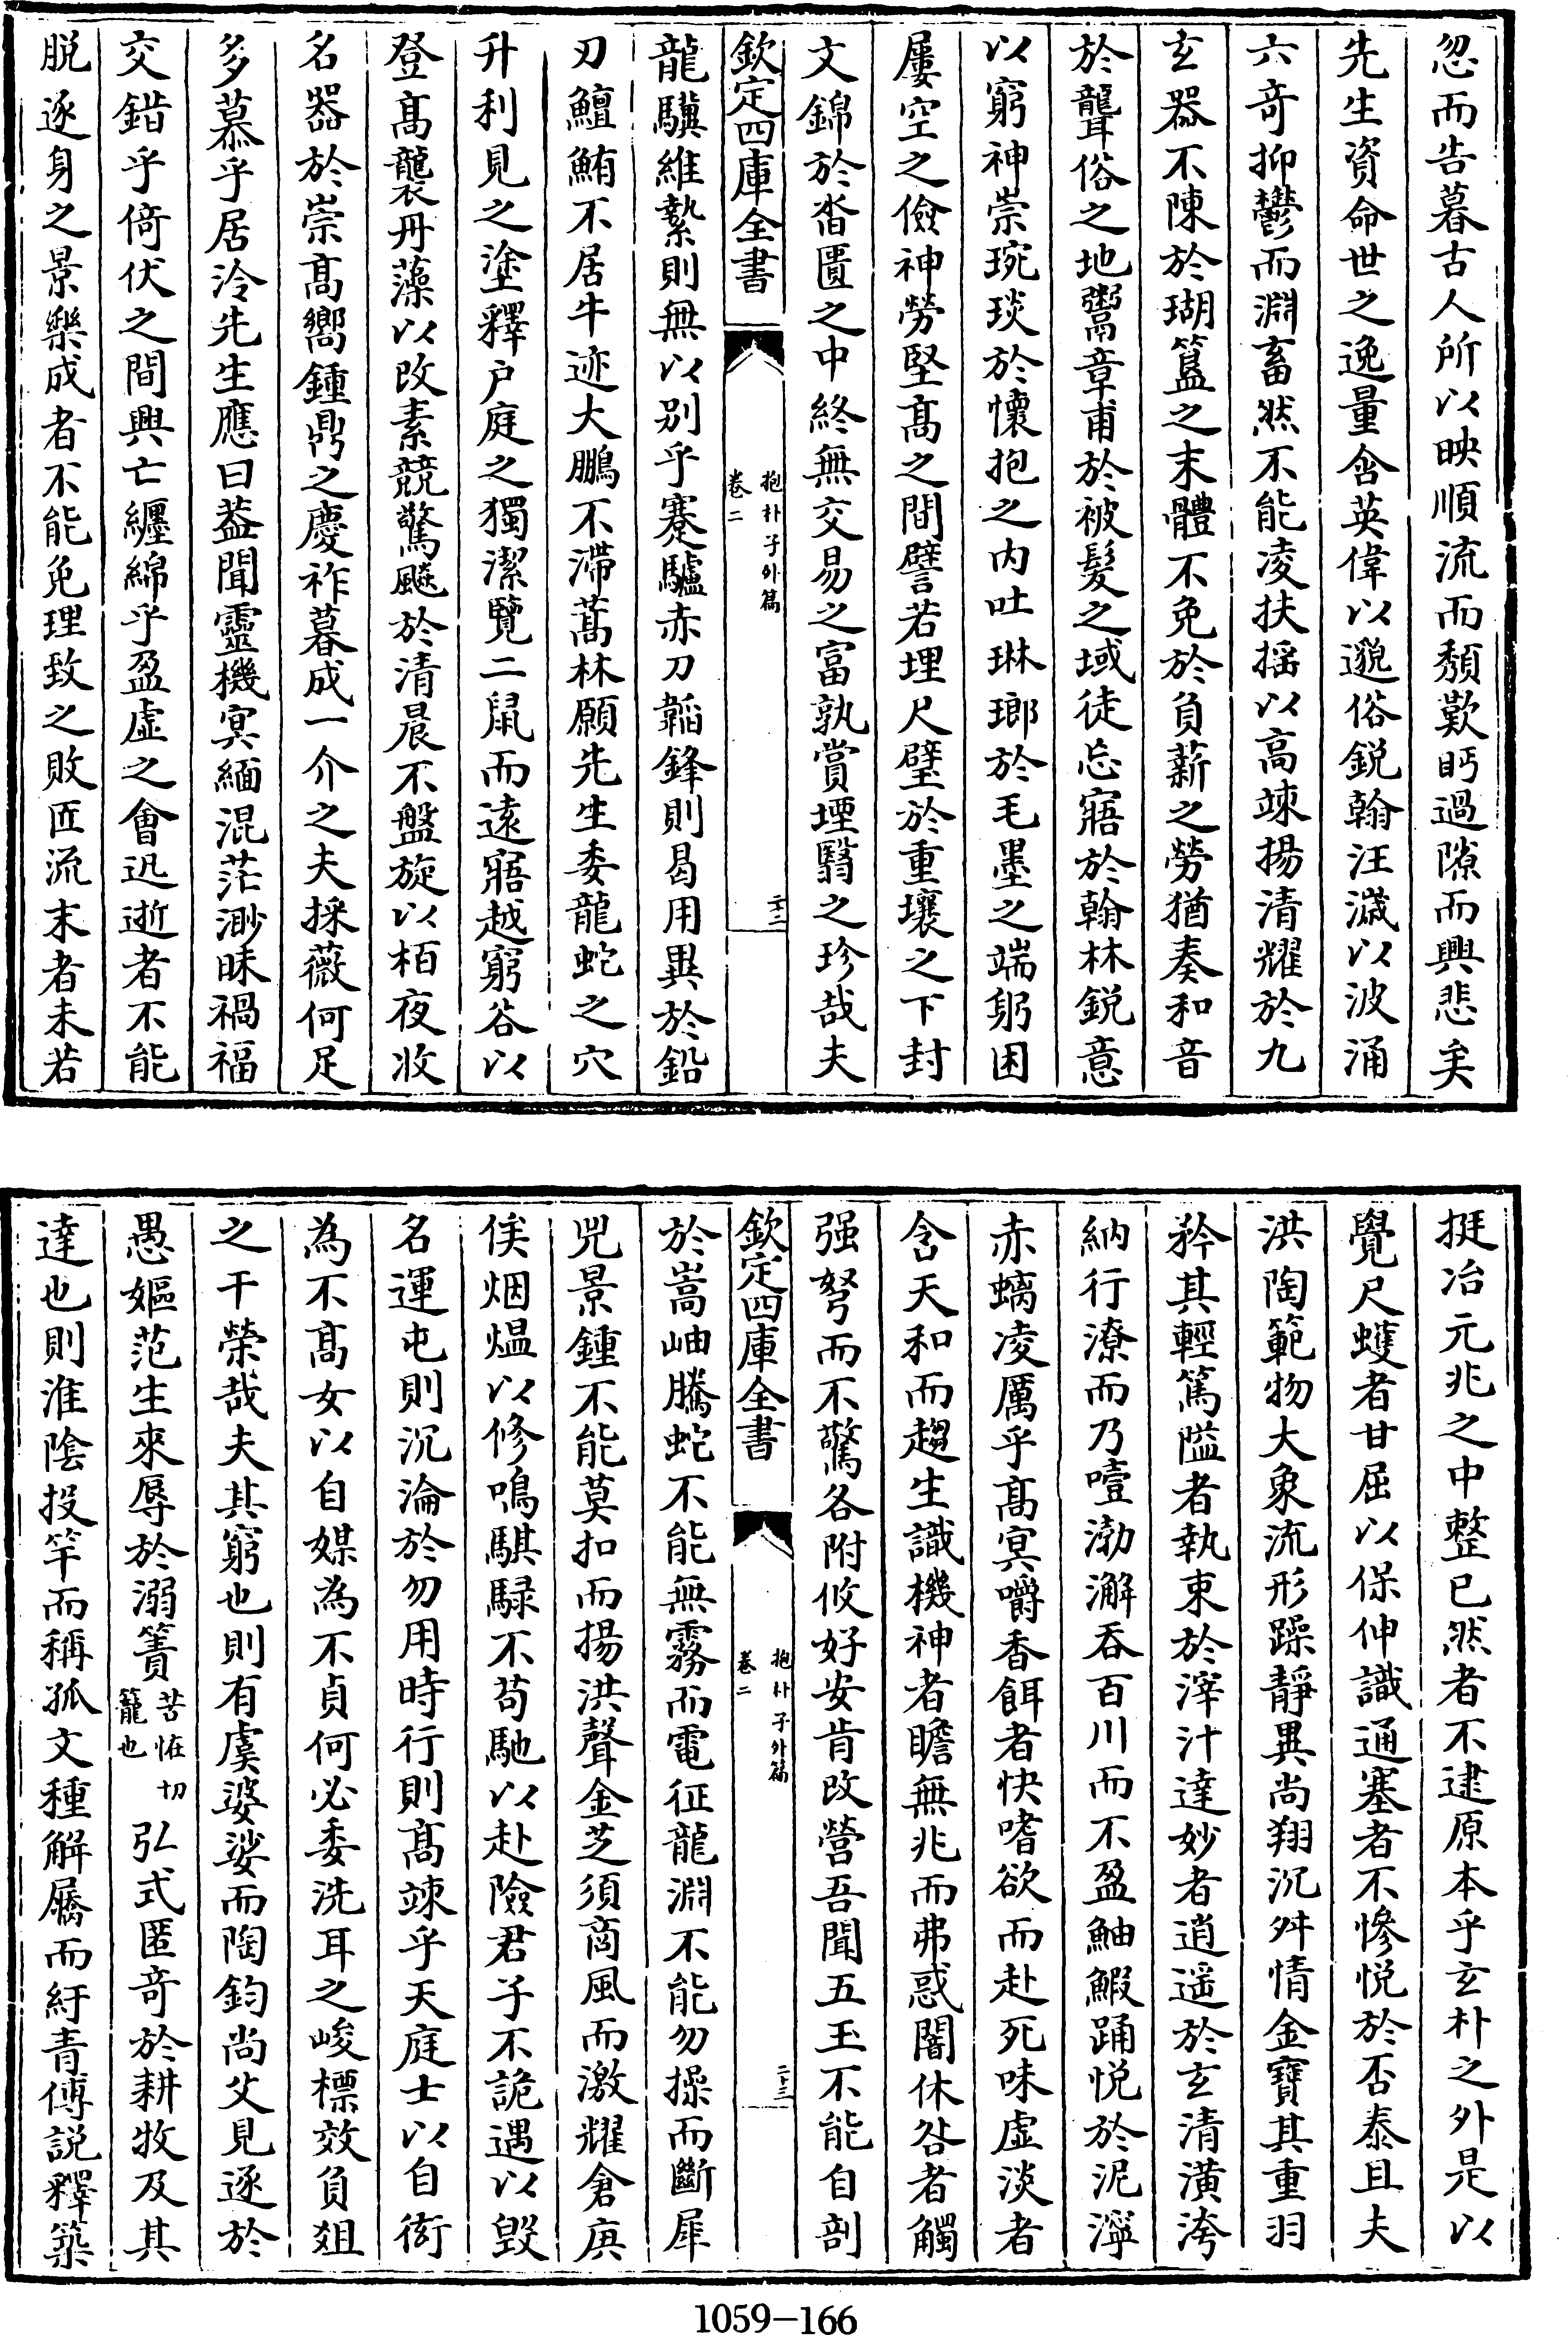 忽而告暮古人所以映順流而頽歎眄過隙而興悲矣
先生資命世之逸量含英偉以邈俗鋭翰汪濊以波涌
六竒抑鬱而淵畜然不能凌扶摇以高竦揚清耀於九
玄器不陳於瑚簋之末體不免於負薪之勞猶奏和音
於聾俗之地鬻章甫於被髮之域徒忘寤於翰林鋭意
以窮神崇琬琰於懷抱之内吐琳瑯於毛墨之端躬困
屢空之儉神勞堅髙之間譬若埋尺璧於重壤之下封
文錦於沓匱之中終無交易之富孰賞堙翳之珍哉夫
欽定四庫全書
抱朴子外篇
卷二
二十二
龍驥維縶則無以别乎蹇驢赤刀韜鋒則曷用異於鉛
刃鱣鮪不居牛迹大鵬不滯蒿林願先生委龍蛇之穴
升利見之塗釋户庭之獨潔覽二鼠而遠寤越窮谷以
登髙襲丹藻以改素競驚飈於清晨不盤旋以栢夜收
名器於崇髙嚮鍾鼎之慶祚暮成一介之夫採薇何足
多慕乎居泠先生應曰葢聞靈機㝠緬混茫渺昧禍福
交錯乎倚伏之間興亡纒綿乎盈虚之會迅逝者不能
脱逐身之景樂成者不能免理致之敗匠流末者未若
挺冶元兆之中整已然者不逮原本乎玄朴之外是以
覺尺蠖者甘屈以保伸識通塞者不慘悦於否泰且夫
洪陶範物大象流形躁靜異尚翔沉舛情金寶其重羽
矜其輕篤隘者執束於滓汁達妙者逍遥於玄清潢洿
納行潦而乃噎渤澥吞百川而不盈鮋鰕踊悦於泥濘
赤螭凌厲乎髙㝠嚼香餌者快嗜欲而赴死味虚淡者
含天和而趨生識機神者瞻無兆而弗惑闇休咎者觸
强弩而不驚各附攸好安肯改營吾聞五玉不能自剖
欽定四庫全書
抱朴子外篇
卷二
二十三
於嵩岫騰蛇不能無霧而電征龍淵不能勿操而斷犀
兕景鍾不能莫扣而揚洪聲金芝須商風而激耀倉庚
俟烟煴以修鳴騏騄不苟馳以赴險君子不詭遇以毁
名運屯則沉淪於勿用時行則髙竦乎天庭士以自衒
為不髙女以自媒為不貞何必委洗耳之峻標效負俎
之干榮哉夫其窮也則有虞婆娑而陶鈞尚父見逐於
愚嫗范生來辱於溺簀苦恠切籠也弘式匿竒於耕牧及其
達也則淮隂投竿而稱孤文種解屩而紆青傅説釋築
1059-166